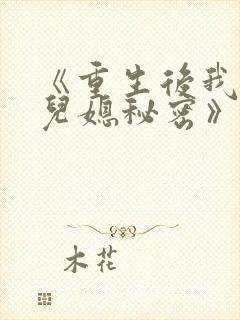 《重生後我
兒媳秘密》
木花